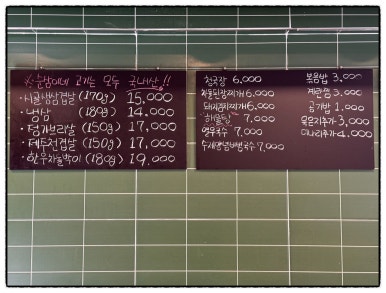 ※ 순밤이네 고기는 모두 국내산!!
·시골냉삼겹살 (170g) 15,000
·냉삼 (180g) 14,000
·덜가브리살 (150g) 17,000
·제주전겹살 (150g) 17,000
·한우차돌박이 (180g) 19,000
청국장 6,000
차돌된장찌개 6,000
돼지김치찌개 6,000
해물탕 7,000
열무국수 7,000
수제양념비빔국수 7,000
볶음밥 3,000
계란찜 3,000
공기밥 1,000
묵은지추가 3,000
미나리추가 4,000